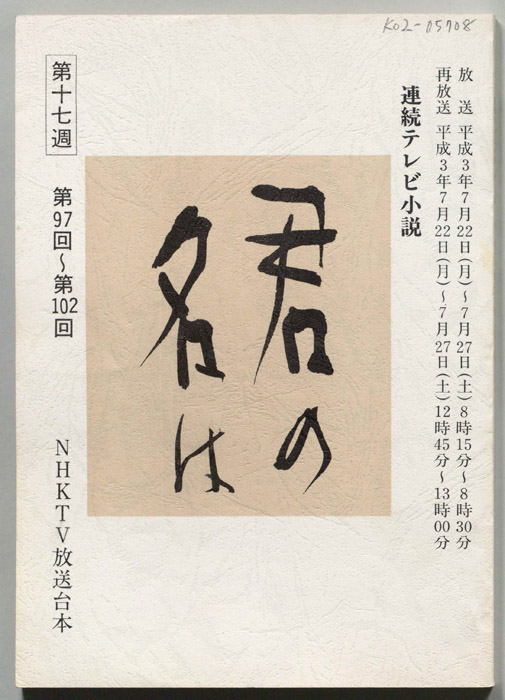 K02-05708
放送 平成3年7月22日(月)～7月27日(土)8時15分～8時30分
再放送 平成3年7月22日(月)～7月27日(土)12時45分～13時00分
連続テレビ小説
君の
名は
第十七週
第97回～第102回
NHKTV放送台本